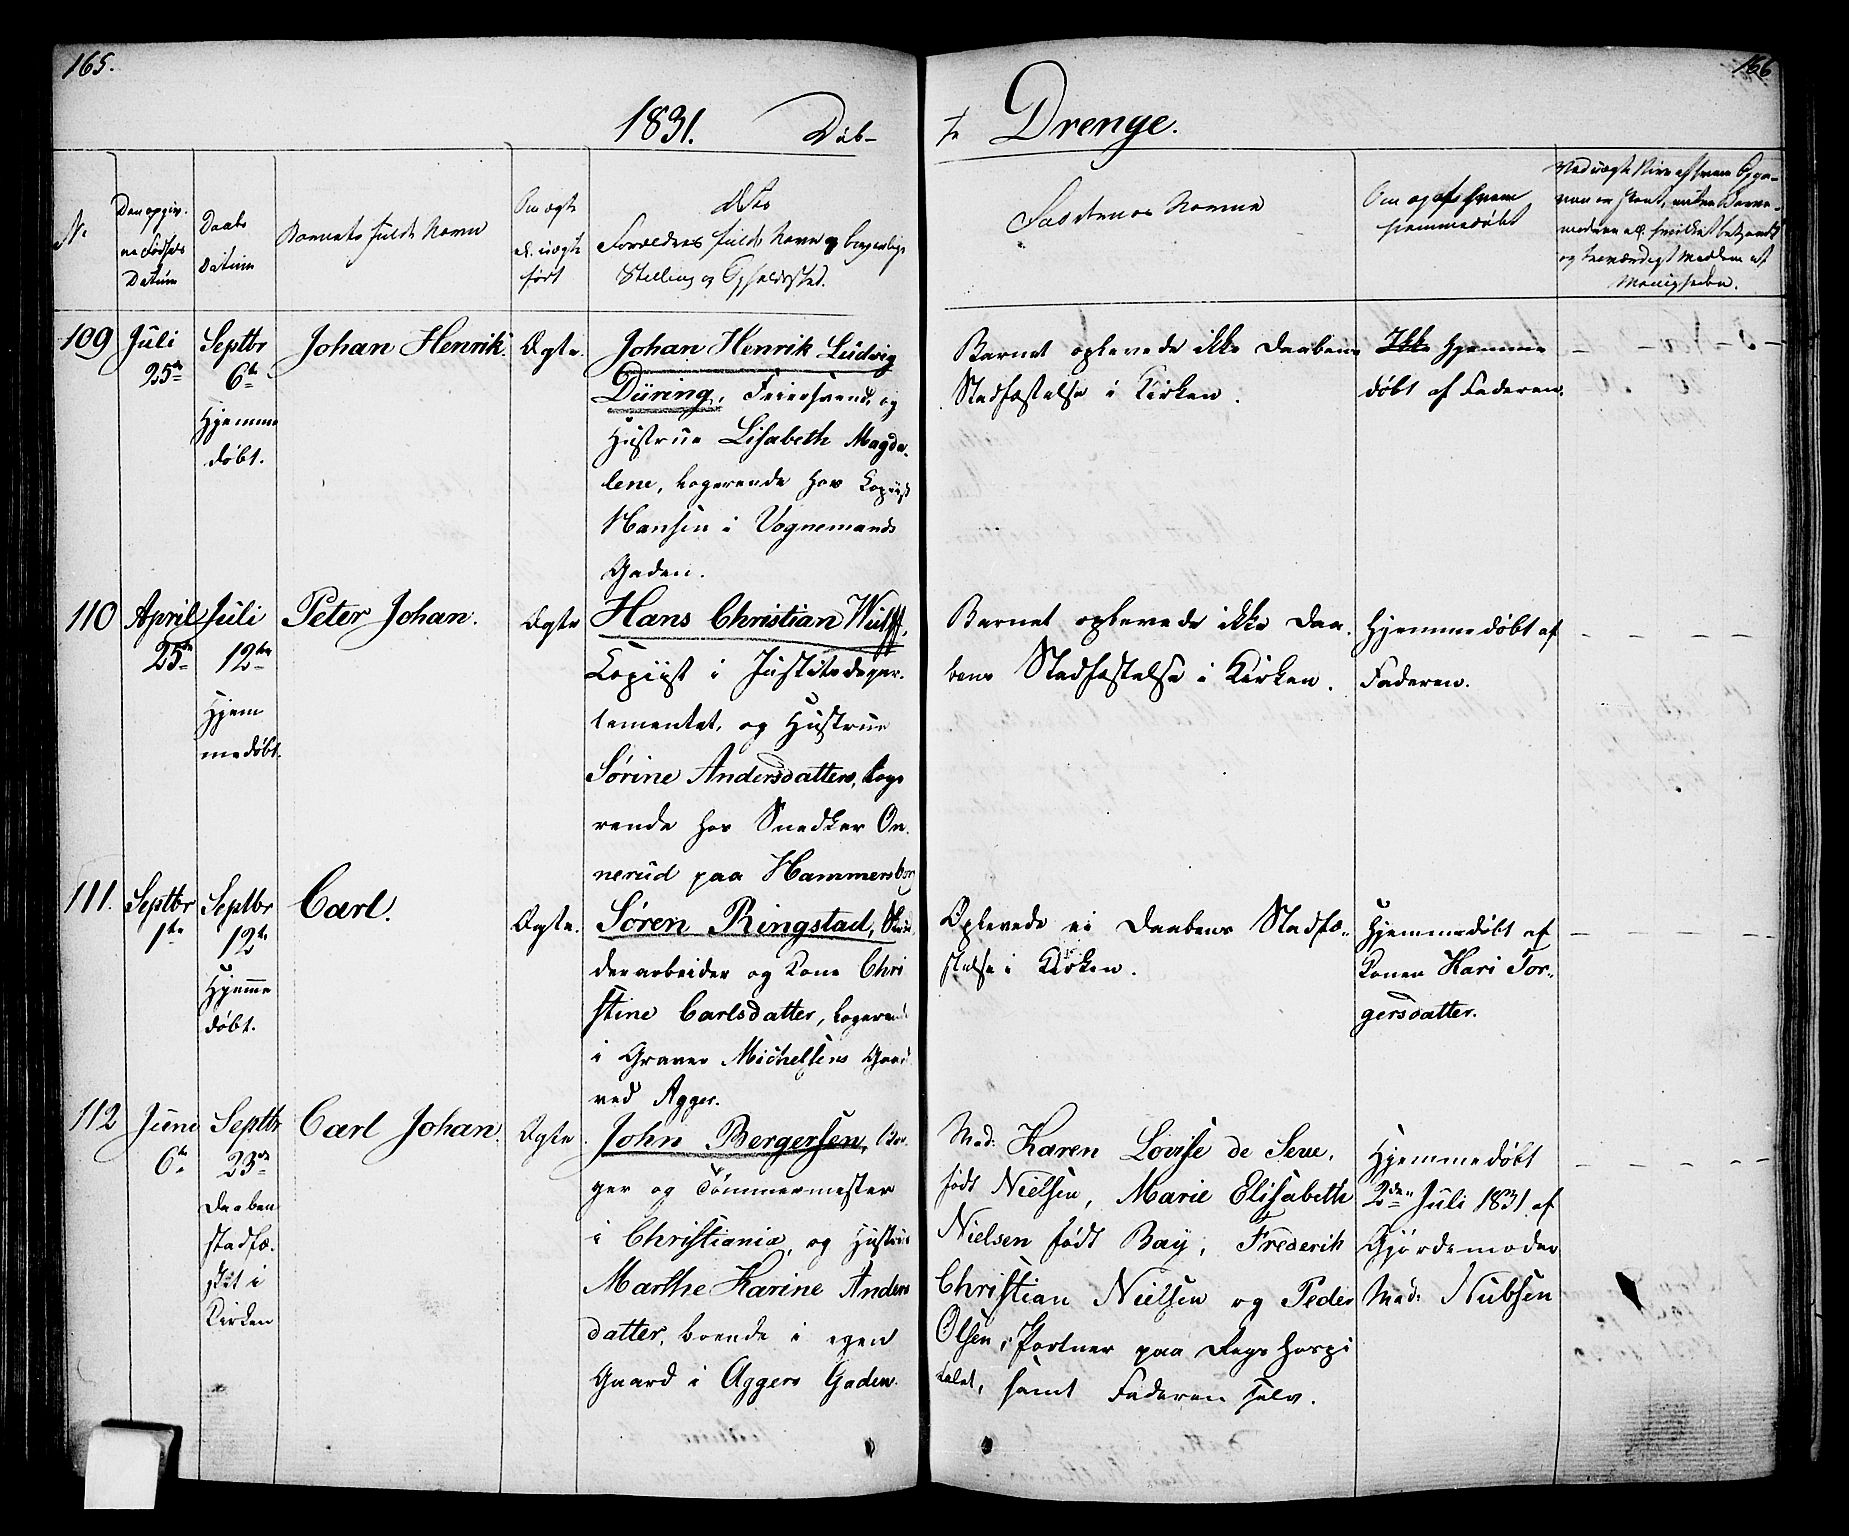 165.
166
1831. Døb-
te Drenge.
N.
Den opgiv-
ne Fødsels
Datum
Daabs
Datum
Barnets fulde Navn
Om ægte
el. uægte
født
Forældres fulde Navn og borgerlige
Stilling og Opholdssted.
Faddernes Navne
Om og af hvem
hjemmedøbt
109
Juli
25de
Septbr
6te
Hjemme
døbt.
Johan Henrik.
Ægte.
Johan Henrik Ludvig
Düring, Feiersvend, og
Hustrue Lisabeth Magda-
lene, logerende hos Kopiist
Hansen i Vognemands
Gaden.
Barnet oplevede ikke Daabens
Stadfæstelse i Kirken.
Ikke Hjemme
døbt af Faderen.
110
April
25de
Juli
12te
Hjem
medøbt.
Peter Johan.
Ægte
Hans Christian Wulff,
Kopiist i Justitsdepar-
tementet, og Hustrue
Sørine Andersdatter, loge
rende hos Snedker On-
nerud paa Hammersborg
Barnet oplevede ikke Daa-
bens Stadfæstelse i Kirken.
Hjemmedøbt af
Faderen.
111.
Septbr
1te
Septbr
12te
Hjemme
døbt.
Carl.
Ægte.
Søren Ringstad,
derarbeider og Kone Chri
stine Carlsdatter, logerende
i Graver Michelsens Gaard
ved Agger.
Oplevede ei Daabens Stadfæ-
stelse i Kirken.
Hjemmedøbt af
Konen Kari Tor-
gersdatter.
112
Juni
6te
Septbr
23de
Daaben
stadfæ-
stet i
Kirken
Carl Johan.
Ægte
John Bergersen, Bor-
ger og Tømmermester
i Christiania, og Hustrue
Marthe Karine Anders
datter, boende i egen
Gaard i Aggers Gaden.
Mad: Karen Lovise de Seue,
født Nielsen, Marie Elisabeth
Nielsen født Bay, Frederik
Christian Nielsen og Peder
Olsen, Portner paa Rigs Hospi
talet, samt Faderen selv.
Hjemmedøbt
2den Juli 1831 af
Gjordemoder
Mad: Nubsen